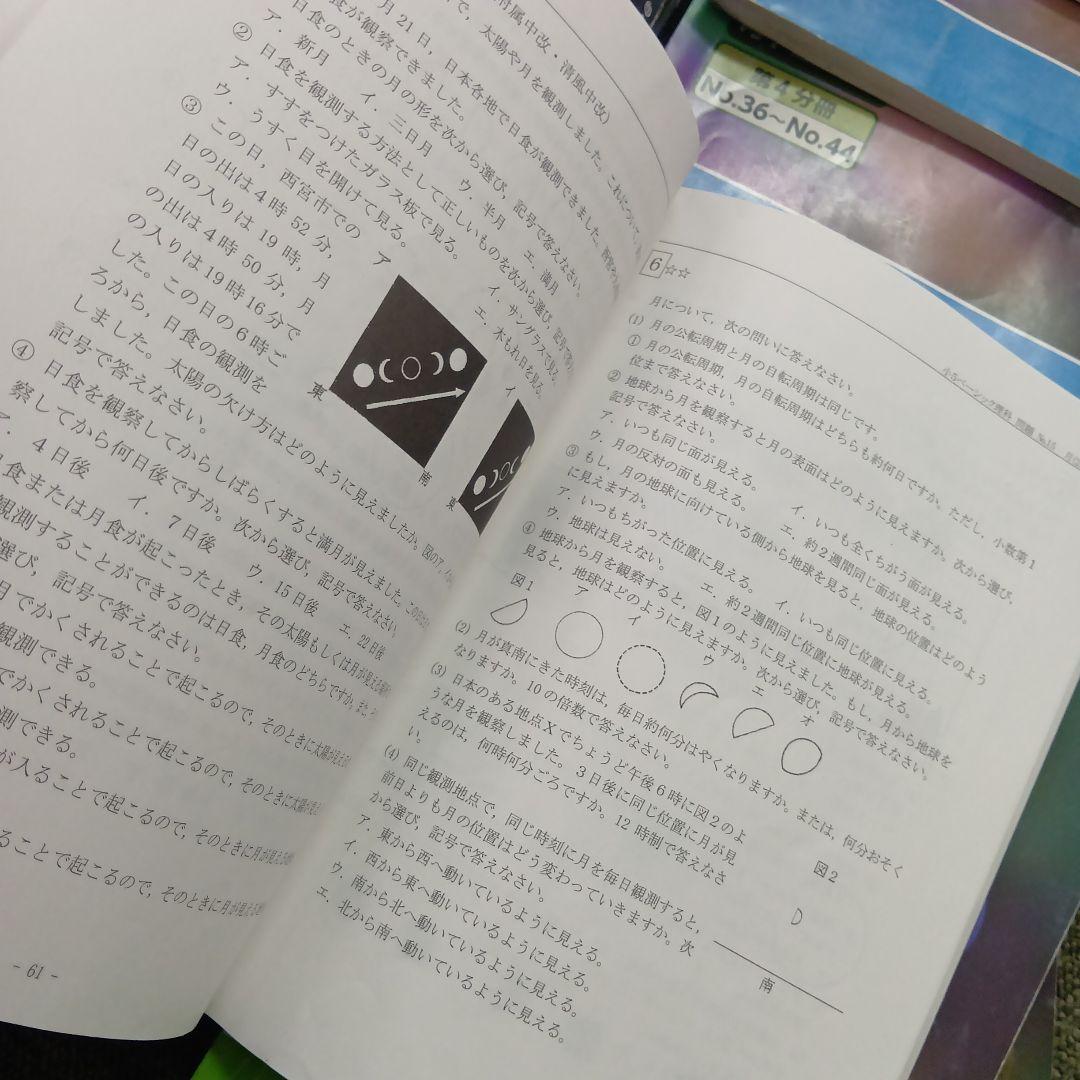 附属中改・清風中改)
て, 太陽や月を観測しました。これについて,
月 21 日, 日本各地で日食が観測できました。
食が観察できました。
日食のときの月の形を次から選び, 記号で答えなさい。
ア. 新月 イ. 三日月 ウ. 半月 エ. 満月
② 日食を観測する方法として正しいものを次から選び, 記号で答
ア. すすをつけたガラス板で見る。
イ. サングラスで見る。
ウ. うすく目を開けて見る。
エ. 木もれ日を見る。
③ この日, 西宮市での
日の出は4時 52 分,
日の入りは 19 時, 月
の出は4時 50 分, 月
の入りは19時16分で
した。この日の6時ご
ろから, 日食の観測を
しました。太陽の欠け方はどのように見えましたか。図のア,
記号で答えなさい。
ア
東
南
イ
東
④ 日食を観察してからしばらくすると満月が見えました。
察してから何日後ですか。次から選び, 記号で答えなさい。
ア. 4日後 イ. 7日後 ウ. 15日後 エ. 22日後
食または月食が起こったとき, その太陽もしくは月が見える
観測することができるのは日食, 月食のどちらですか。また,
選び, 記号で答えなさい。
月でかくされることで起こるので, そのときに太陽が見え
観測できる。
でかくされることで起こるので, そのときに太陽が見え
測できる。
が入ることで起こるので, そのときに月が見える
ることで起こるので, そのときに月が見える
- 61 -
第4分冊
No.36～No.44
小5ベーシック理科 問題 No.15
6 ☆☆
月について, 次の問いに答えなさい。
(1) 月の公転周期と月の自転周期は同じです。
① 月の公転周期, 月の自転周期はどちらも約何日ですか。ただし, 小数第1
位まで答えなさい。
② 地球から月を観察すると月の表面はどのように見えますか。次から選び,
記号で答えなさい。
ア. いつも同じ面が見える。 イ. いつも全くちがう面が見える。
ウ. 月の反対の面も見える。 エ. 約2週間同じ面が見える。
③ もし, 月の地球に向けている側から地球を見ると, 地球の位置はどのよう
に見えますか。
ア. いつもちがった位置に見える。 イ. いつも同じ位置に見える。
ウ. 地球は見えない。 エ. 約2週間同じ位置に地球が見える。
④ 地球から月を観察すると, 図1のように見えました。もし, 月から地球を
見ると, 地球はどのように見えますか。次から選び, 記号で答えなさい。
図1
ア
イ
ウ
エ
オ
(2) 月が真南にきた時刻は, 毎日約何分はやくなりますか。または, 何分おそく
なりますか。10 の倍数で答えなさい。
(3) 日本のある地点Xでちょうど午後6時に図2のよ
うな月を観察しました。3日後に同じ位置に月が見
えるのは, 何時何分ごろですか。12 時制で答えなさ
い。
(4) 同じ観測地点で, 同じ時刻に月を毎日観測すると,
前日よりも月の位置はどう変わっていきますか。次
から選び, 記号で答えなさい。
ア. 東から西へ動いているように見える。
イ. 西から東へ動いているように見える。
ウ. 南から北へ動いているように見える。
エ. 北から南へ動いているように見える。
図2
南